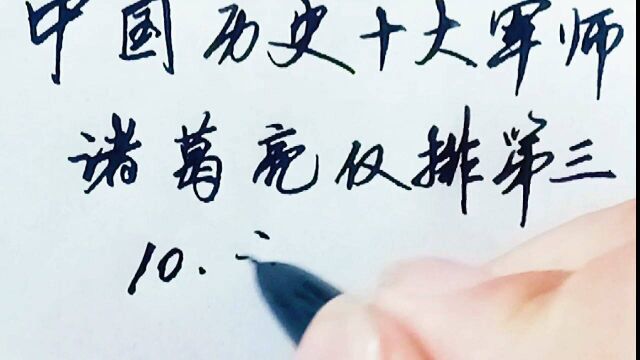 中国历史十大军师
诸葛亮仅排第三
10.